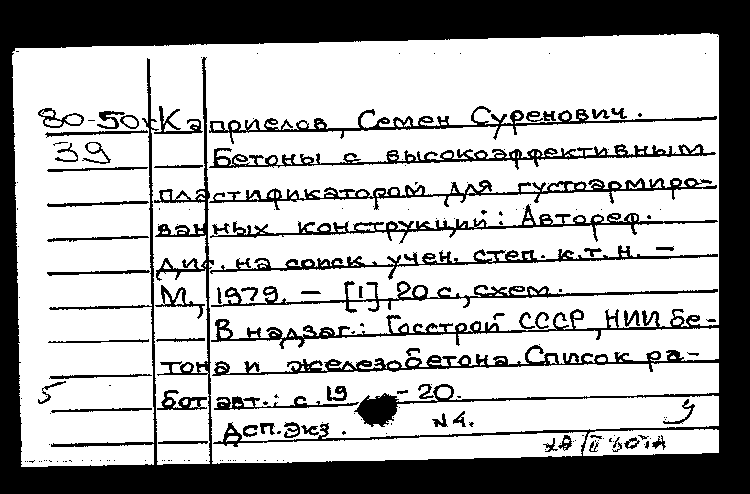 80-50к Каприелов, Семен Суренович.
39 Бетоны с высокоэффективным
пластификатором для густоармиро-
ванных конструкций: Автореф.
дис. на соиск. учен. степ. к.т.н. –
М., 1979. – [1], 20 с., схем.
В надзаг.: Госстрой СССР, НИИ бе-
тона и железобетона. Список ра-
5 бот авт.: с. 19 – 20.
Дсп. экз. N 4.